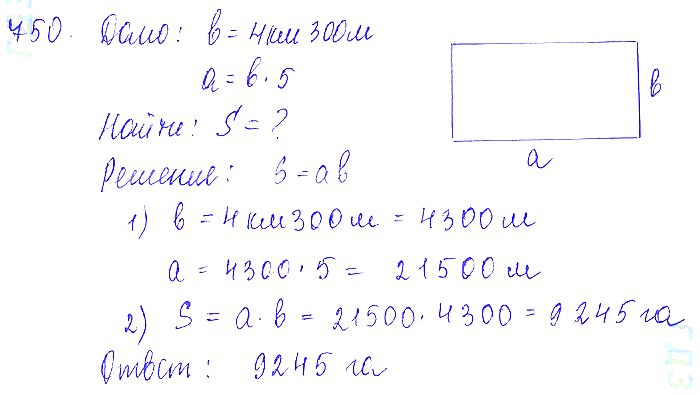 750. Дано: в = 4км 300м
а = в · 5
Найти: S = ?
Решение: S = ав
1) в = 4км300м = 4300м
а = 4300 · 5 = 21500м
2) S = а · в = 21500 · 4300 = 9245га
Ответ: 9245 га
в
а
ГДЗ